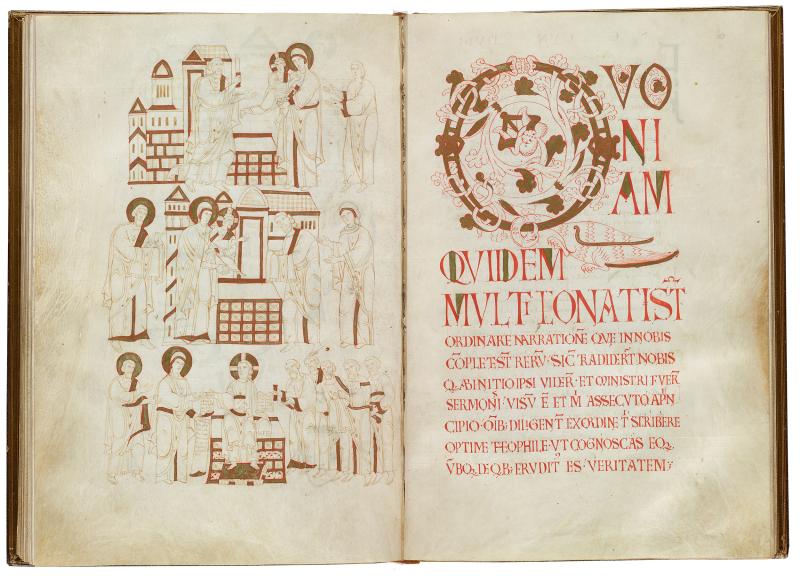 QVO
NI
AM
QVIDEM
MVLTI CONATI ST̄
ORDINARE NARRATIONĒ QVE IN NOBIS
CŌPLETE ST̄ RERV̄ SIC̄ TRADIDERT̄ NOBIS
Q AB INITIO IPSI VIDER̄ ET MINISTRI FVER̄
SERMONI VISV̄ Ē ET M ASSECVTO A PN̄
CIPIO OĪB DILIGENT̄ EX ORDINE T SCRIBERE
OPTIME THEOPHILE VT COGNOSCAS EOꝜ
VBOꝜ DE QB ERVDIT ES VERITATEM